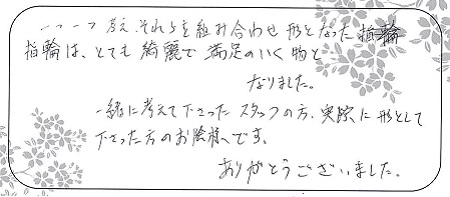 一つ一つ考え、それらを組み合わせ形となった指輪
指輪は、とても綺麗で満足のいく物と
なりました。
一緒に考えて下さったスタッフの方、実際に形として
下さった方のお陰様です。
ありがとうございました。